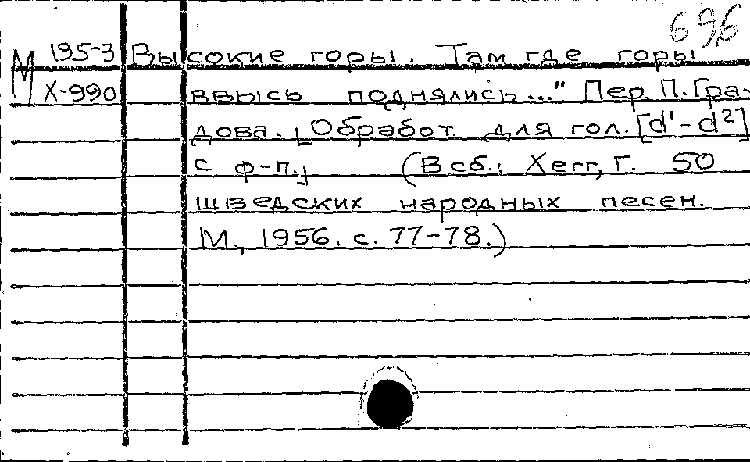 696
М 195-3 Высокие горы. Там где горы
Х-990 ввысь поднялись..." Пер. П. Гра-
дова. [Обработ. для гол. [d¹-d²]
с ф-п.] (В сб.: Хегг, Г. 50
шведских народных песен.
М., 1956. с. 77-78.)